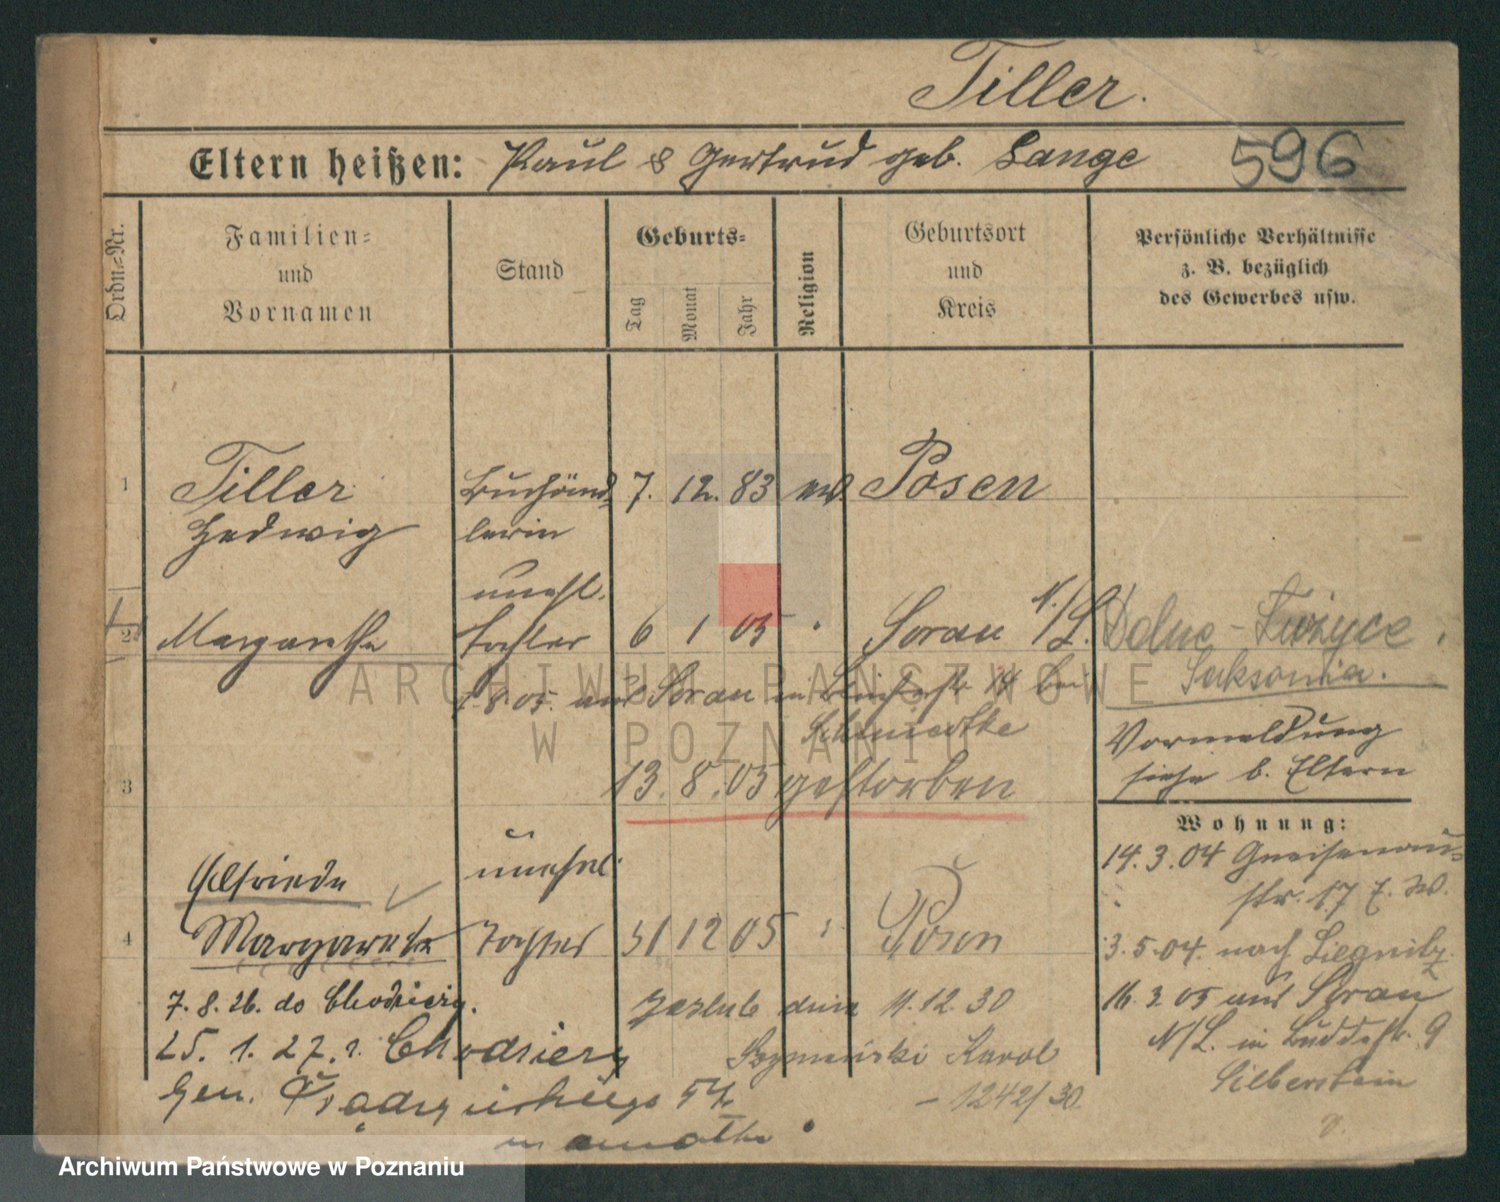 Tiller.
Eltern heißen: Paul & Gertrud geb. Lange
596
Ordn.-Nr.
Familien-
und
Vornamen
Stand
Geburts-
Tag
Monat
Jahr
Religion
Geburtsort
und
Kreis
Persönliche Verhältnisse
z. B. bezüglich
des Gewerbes usw.
1
Tiller
Hedwig
Buchhänd-
lerin
7. 12. 83
ev.
Posen
2
Margarethe
unehl.
Tochter
6 1 05
"
Sorau N./L.
Dolne-Łużyce
Saksonia.
8. 05. aus Sorau in 14 bei
Schmiedtke
3
13. 8. 05 gestorben
Vormeldung
siehe b. Eltern
Wohnung:
14. 3. 04 Gneisenau-
str. 17 b. W.
3. 5. 04. nach Liegnitz
16. 3. 05 aus Sorau
N/L. in Buddestr. 9
Silberstein
4
Elfriede
Margarete
unehel.
Tochter
31 12 05
"
Posen
7. 8. 26. do Chodzieży.
25. 1. 27. z Chodzieży
Gen. Prądzyńskiego 54
m
zaślub dnia 11. 12. 30
Szymański Karol
- 1242/30
ARCHIWUM PAŃSTWOWE
W POZNANIU
Archiwum Państwowe w Poznaniu